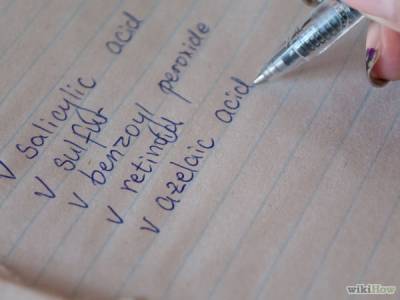 v salicylic acid
v sulfur
v benzoyl peroxide
v retinoid
v azelaic acid
wikiHow